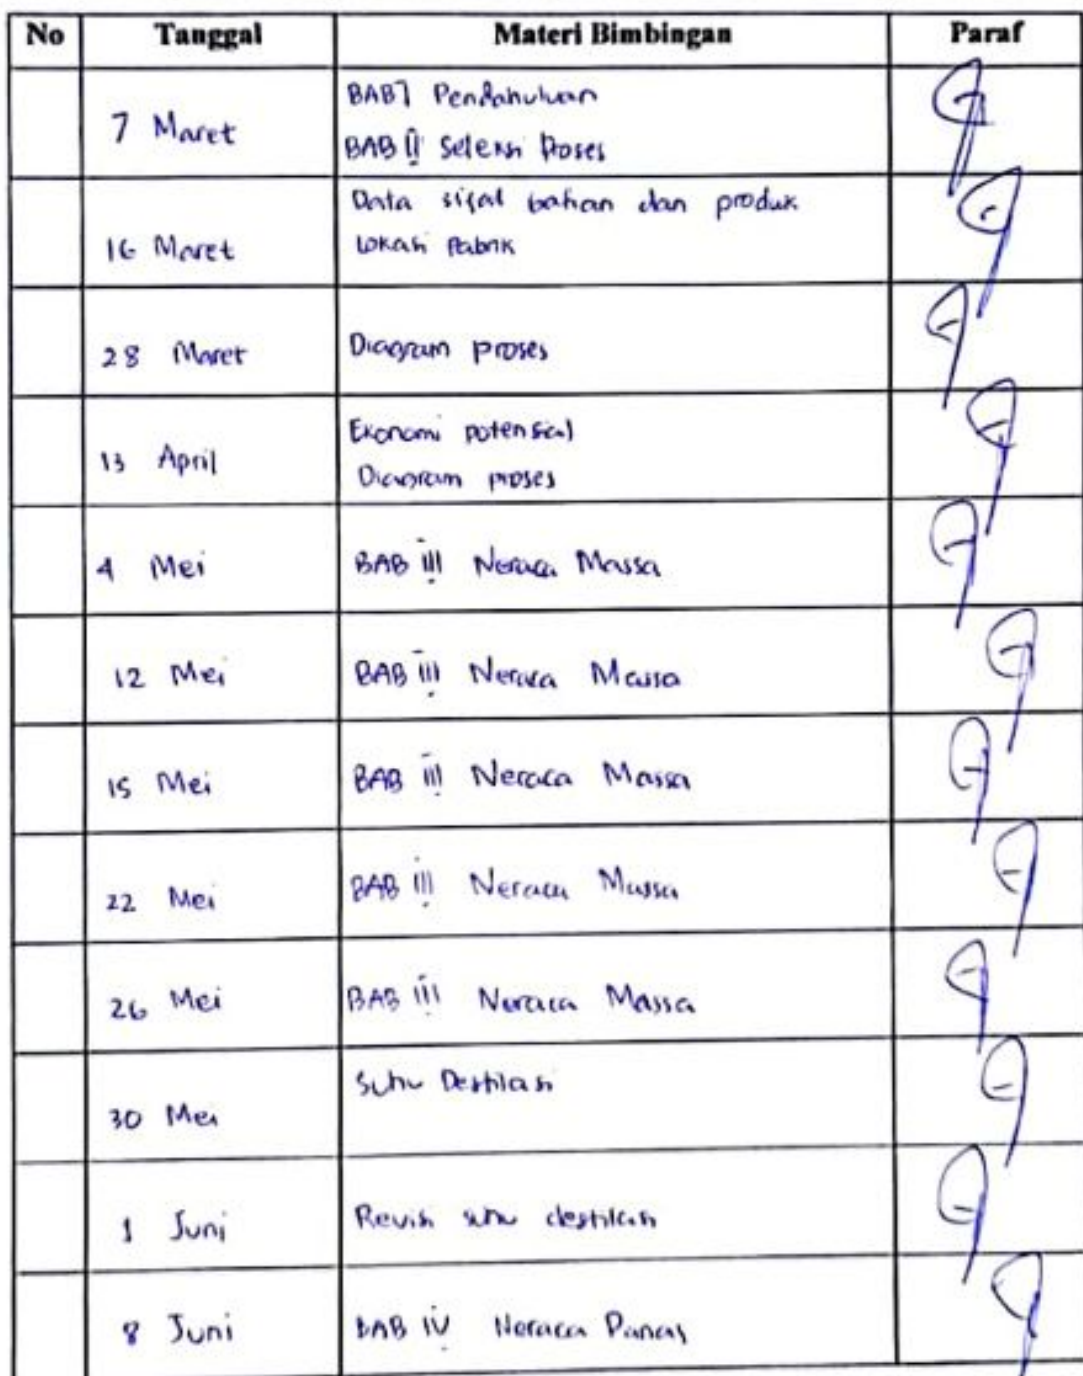 No Tanggal Materi Bimbingan Paraf
7 Maret BAB I Pendahuluan
BAB II Seleksi Proses
16 Maret Data sifat bahan dan produk
Lokasi Pabrik
28 Maret Diagram proses
13 April Ekonomi potensial
Diagram proses
4 Mei BAB III Neraca Massa
12 Mei BAB III Neraca Massa
15 Mei BAB III Neraca Massa
22 Mei BAB III Neraca Massa
26 Mei BAB III Neraca Massa
30 Mei Suhu Destilasi
1 Juni Revisi suhu destilasi
8 Juni BAB IV Neraca Panas